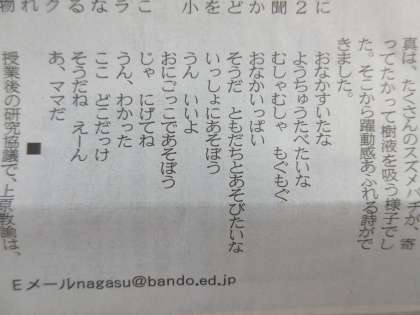 に
２
聞
か
ど
を
小
こ
ラ
な
る
ク
れ
物
真は、たくさんのスズメバチが、寄
ってたかって樹液を吸う様子でし
た。そこから躍動感あふれる詩がで
きました。
おなかすいたな
ようちゅうたべたいな
むしゃむしゃ　もぐもぐ
おなかいっぱい
そうだ　ともだちとあそびたいな
いっしょにあそぼう
うん　いいよ
おにごっこであそぼう
じゃ　にげてね
うん、わかった
ここ　どこだっけ
そうだね　えーん
あ、ママだ
■
授業後の研究協議で、上原教諭は、
Ｅメールnagasu@bando.ed.jp